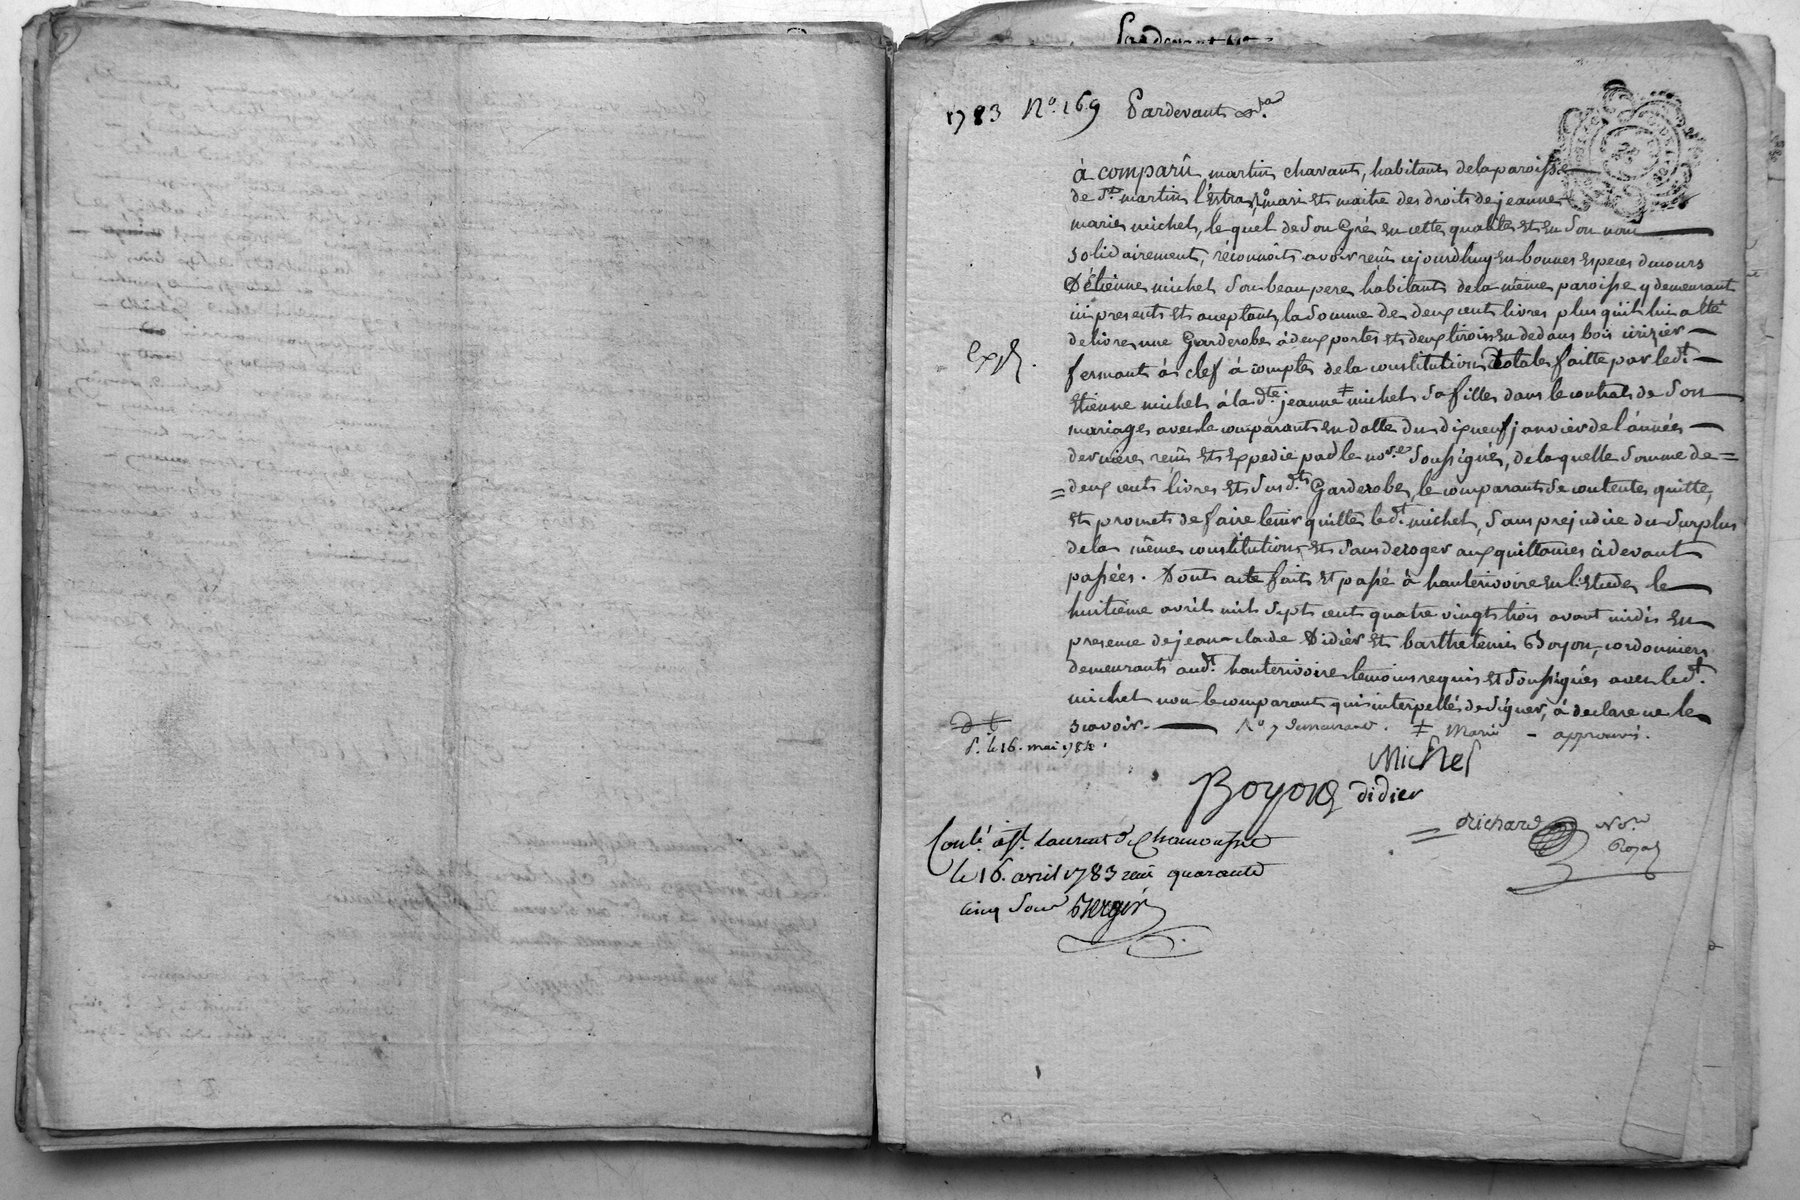 Pardevant
1783 N.º 169 Pardevant &.ra
à comparû martin chavant, habitant de la paroisse
de St. martin l'Estra, mari et maitre des droits de jeanne
marie michel, le quel de Son Gré en cette qualité et en Son nom
solidairement, réconnoit avoir reçu cejourdhuy en bonnes especes du cours
D'étienne michel Son beau pere habitant de la même paroisse y demeurant
ici present et aceptant, la Somme de deux cent livres plus qu'il lui a été
delivre une Garderobe à deux portes et deux tiroirs en dedans bois cerizier
Expé.
fermant à clef à compte de la constitution totale faitte par led.t
Etienne michel à la d.te jeanne ‡ michel Sa fille dans le contrat de Son
mariage avec le comparant en datte du dix neuf janvier de l'année
derniere reçu et expedié par le no.re Soussigné, de laquelle Somme de =
= deux cent livres et Susd.te Garderobe, le comparant Se contente quitte,
et promet de faire tenir quitte led.t michel, Sans prejudice du Surplus
de la même constitution, et Sans deroger aux quittances cidevant
passées. Dont acte fait et passé à hauterivoire en l'Etude, le
huitième avril mil Sept cent quatre vingt trois avant midi en
presence de jean claude Didier et barthelemi Boyon, cordonniers
demeurants aud.t hauterivoire temoins requis et Soussignés avec led.t
michel non le comparant qui interpellé de Signer, à declaré ne le
scavoir. ‡ Marie - approuvé.
d. le 16. mai 1784.
Michel
Boyon didier
Richard No.re
Royal
Conlé. à St. Laurent de Chamousset
le 16. avril 1783 reçu quarante
cinq Sous